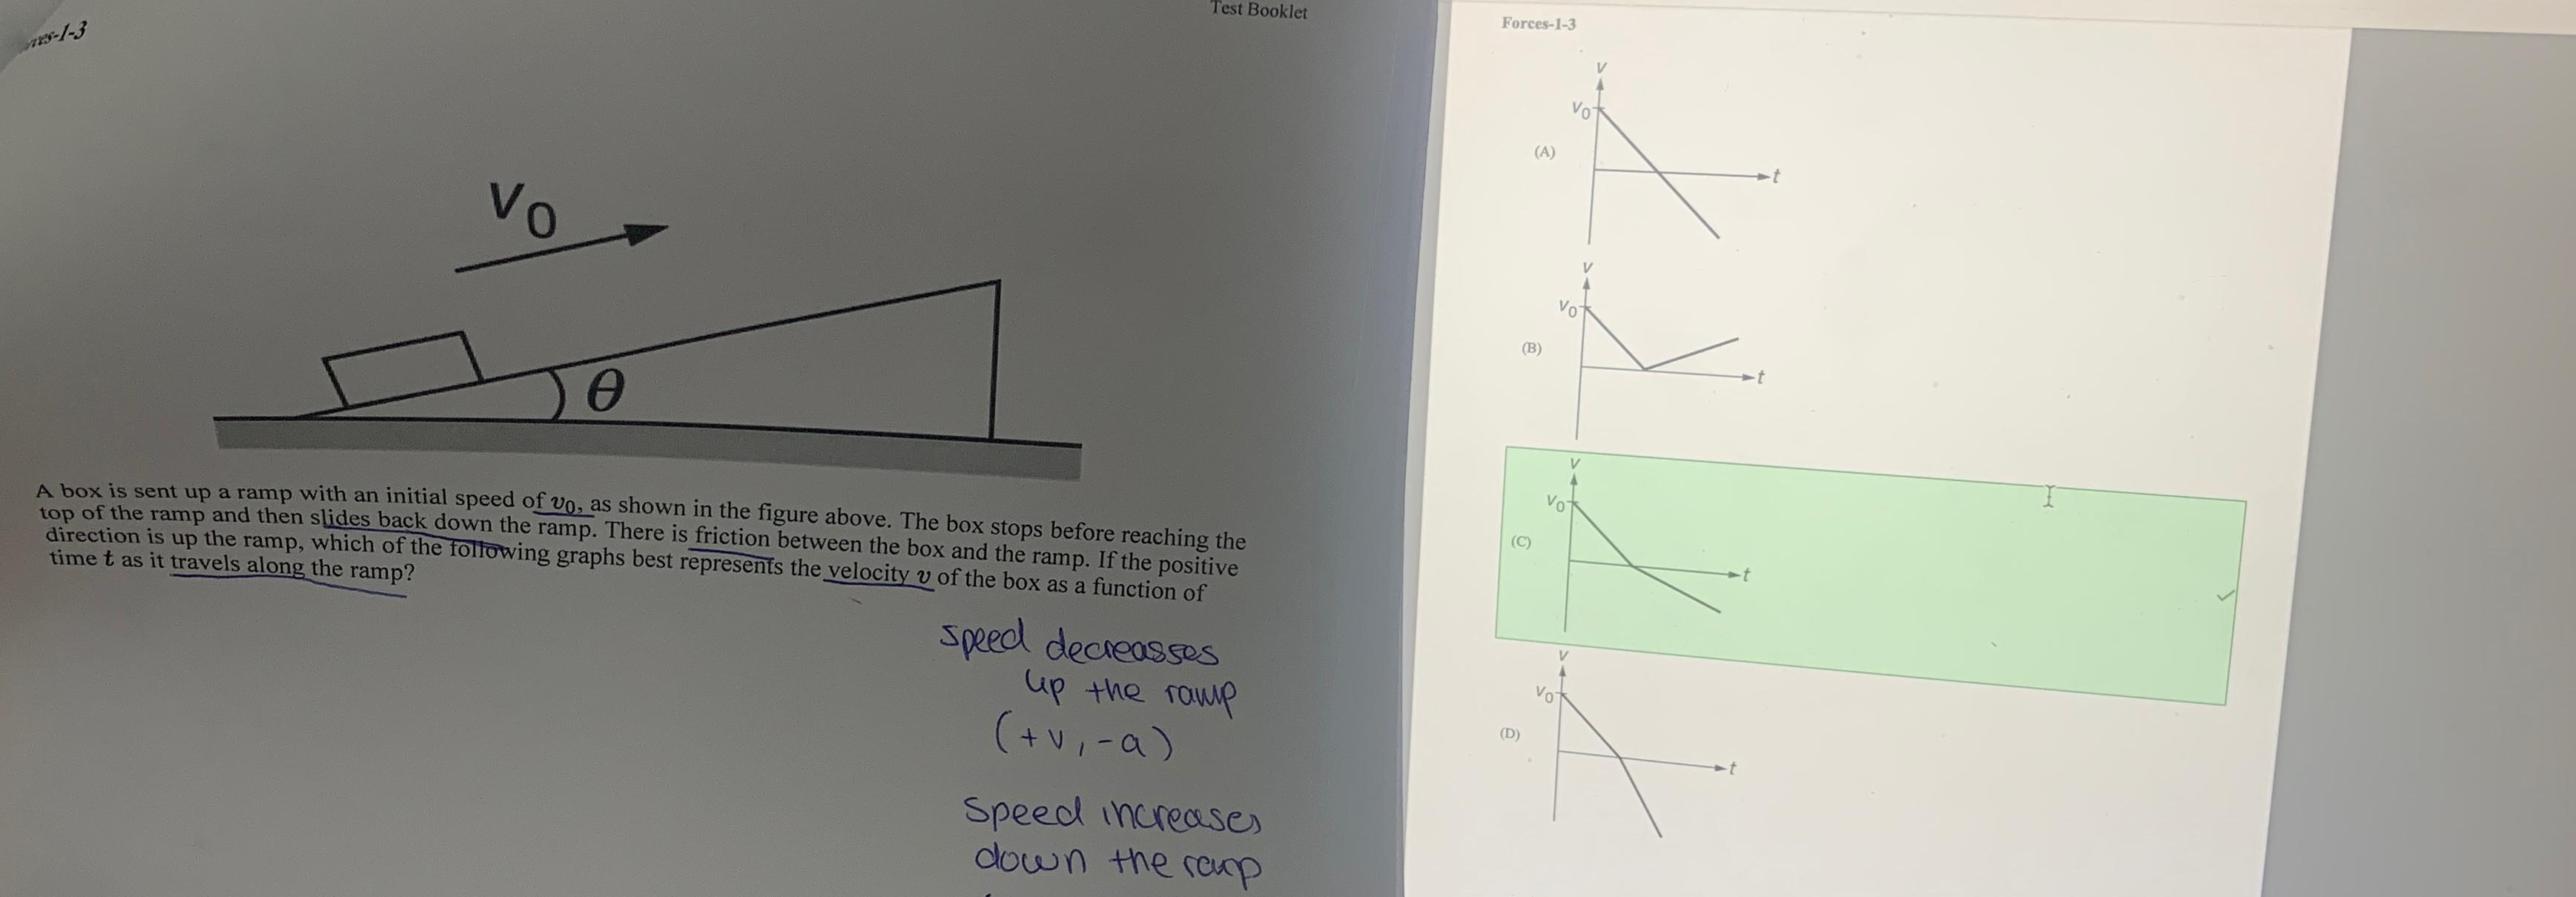 Test Booklet
v0
θ
A box is sent up a ramp with an initial speed of v0, as shown in the figure above. The box stops before reaching the
top of the ramp and then slides back down the ramp. There is friction between the box and the ramp. If the positive
direction is up the ramp, which of the following graphs best represents the velocity v of the box as a function of
time t as it travels along the ramp?
speed decreasses
up the ramp
(+v, -a)
speed increases
down the ramp
Forces-1-3
v
v0
(A)
t
v
v0
(B)
t
v
v0
(C)
t
v
v0
(D)
t